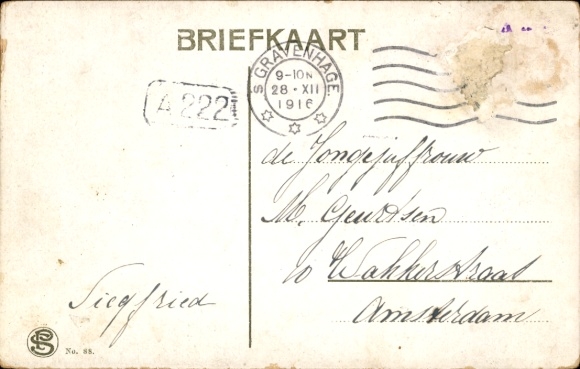 BRIEFKAART
'S GRAVENHAGE.
9-10 N
28 • XII
1916
A 222
de Jongejuffrouw
M. Geurtsen
10 Wakkerstraat
Amsterdam
Siegfried
No. 88.